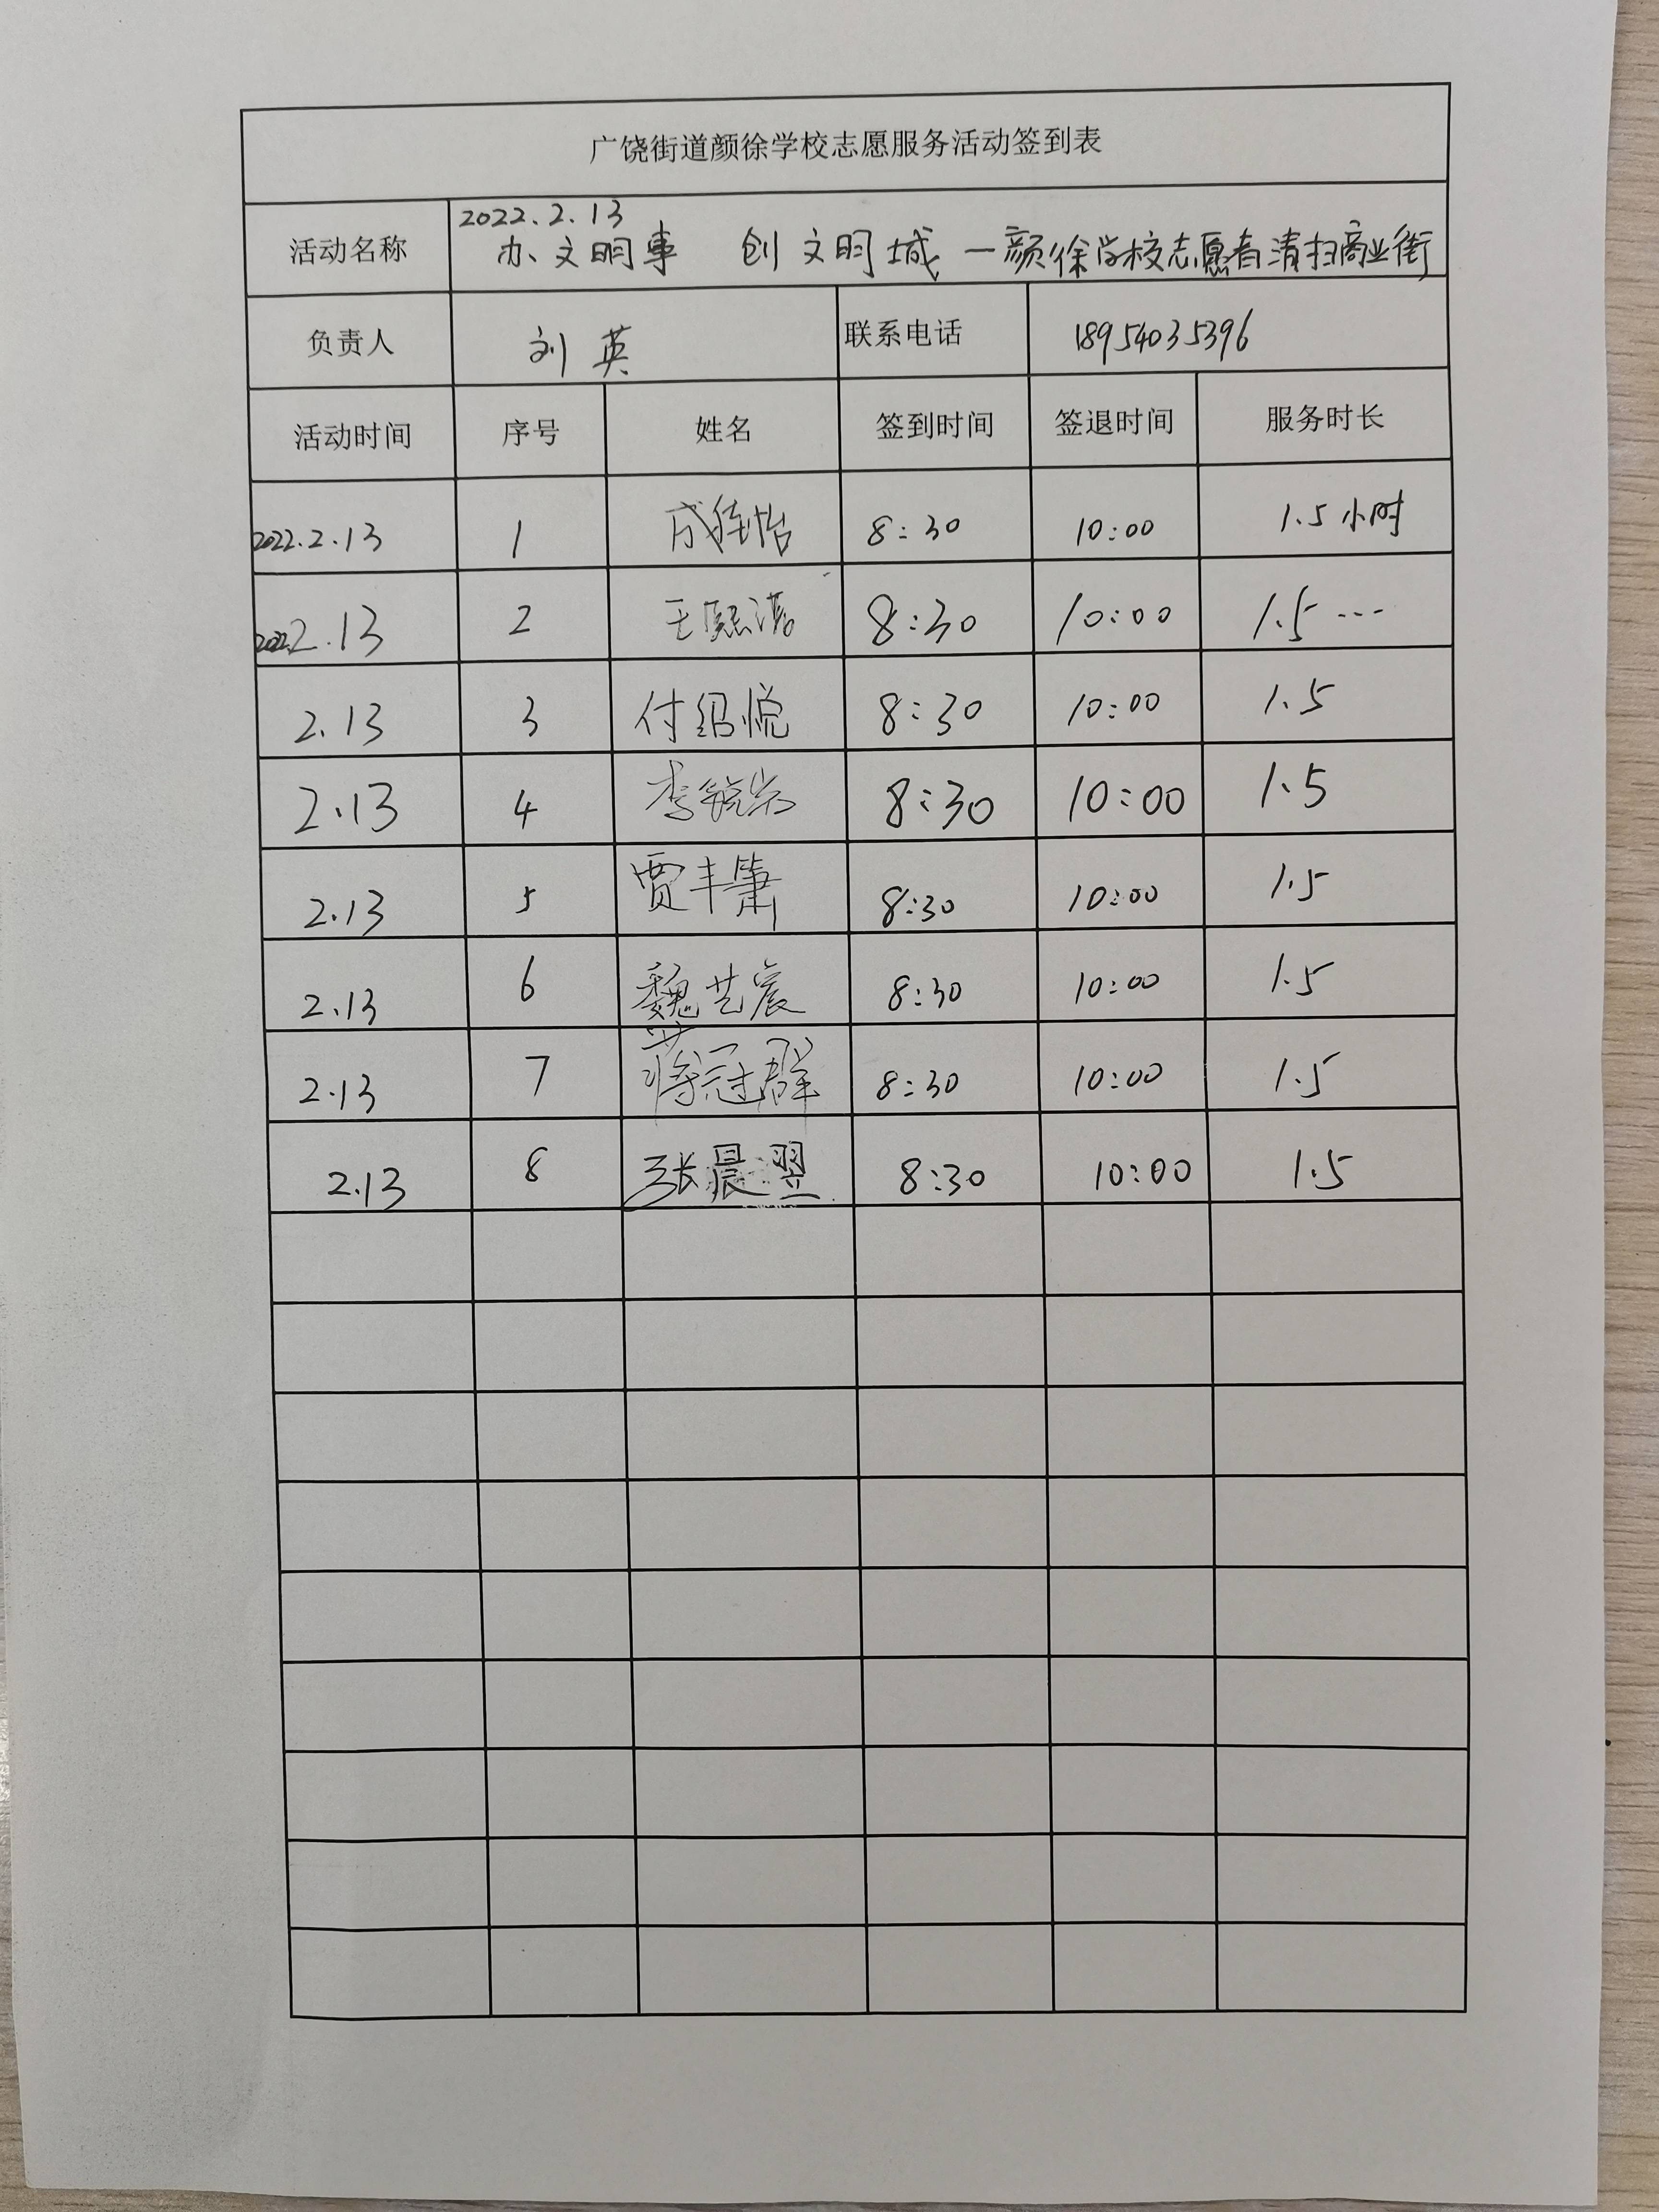 广饶街道颜徐学校志愿服务活动签到表
活动名称 2022.2.13
办文明事 创文明城 一颜徐学校志愿者清扫商业街
负责人 刘英 联系电话 18954035396
活动时间 序号 姓名 签到时间 签退时间 服务时长
2022.2.13 1 8:30 10:00 1.5小时
2022.2.13 2 8:30 10:00 1.5 ---
2.13 3 付绍悦 8:30 10:00 1.5
2.13 4 8:30 10:00 1.5
2.13 5 贾丰箫 8:30 10:00 1.5
2.13 6 魏艺宸 8:30 10:00 1.5
2.13 7 蒋冠群 8:30 10:00 1.5
2.13 8 张晨翌 8:30 10:00 1.5